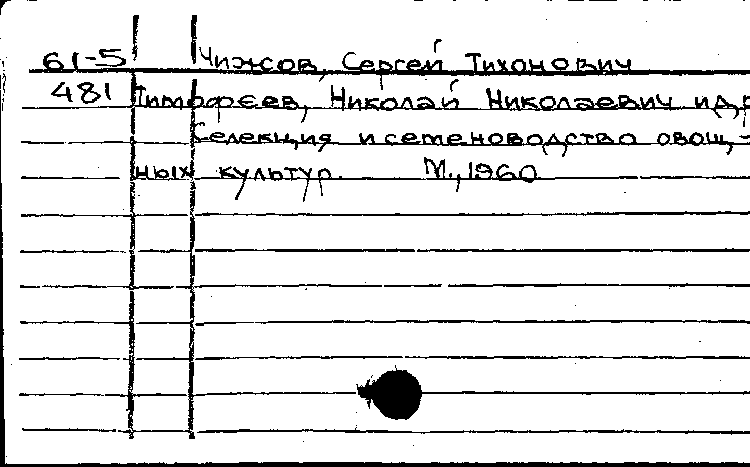 61-5 Чижов, Сергей Тихонович
481 Тимофеев, Николай Николаевич и др
Селекция и семеноводство овощ-
ных культур. М., 1960